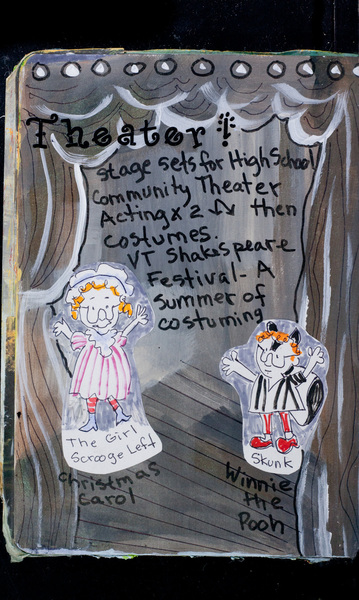 Theater!
Stage sets for High School
Community Theater
Acting x 2 then
costumes.
VT Shakespeare
Festival - A
summer of
costuming
The Girl
Scrooge Left
Christmas
Carol
Skunk
Winnie
the
Pooh